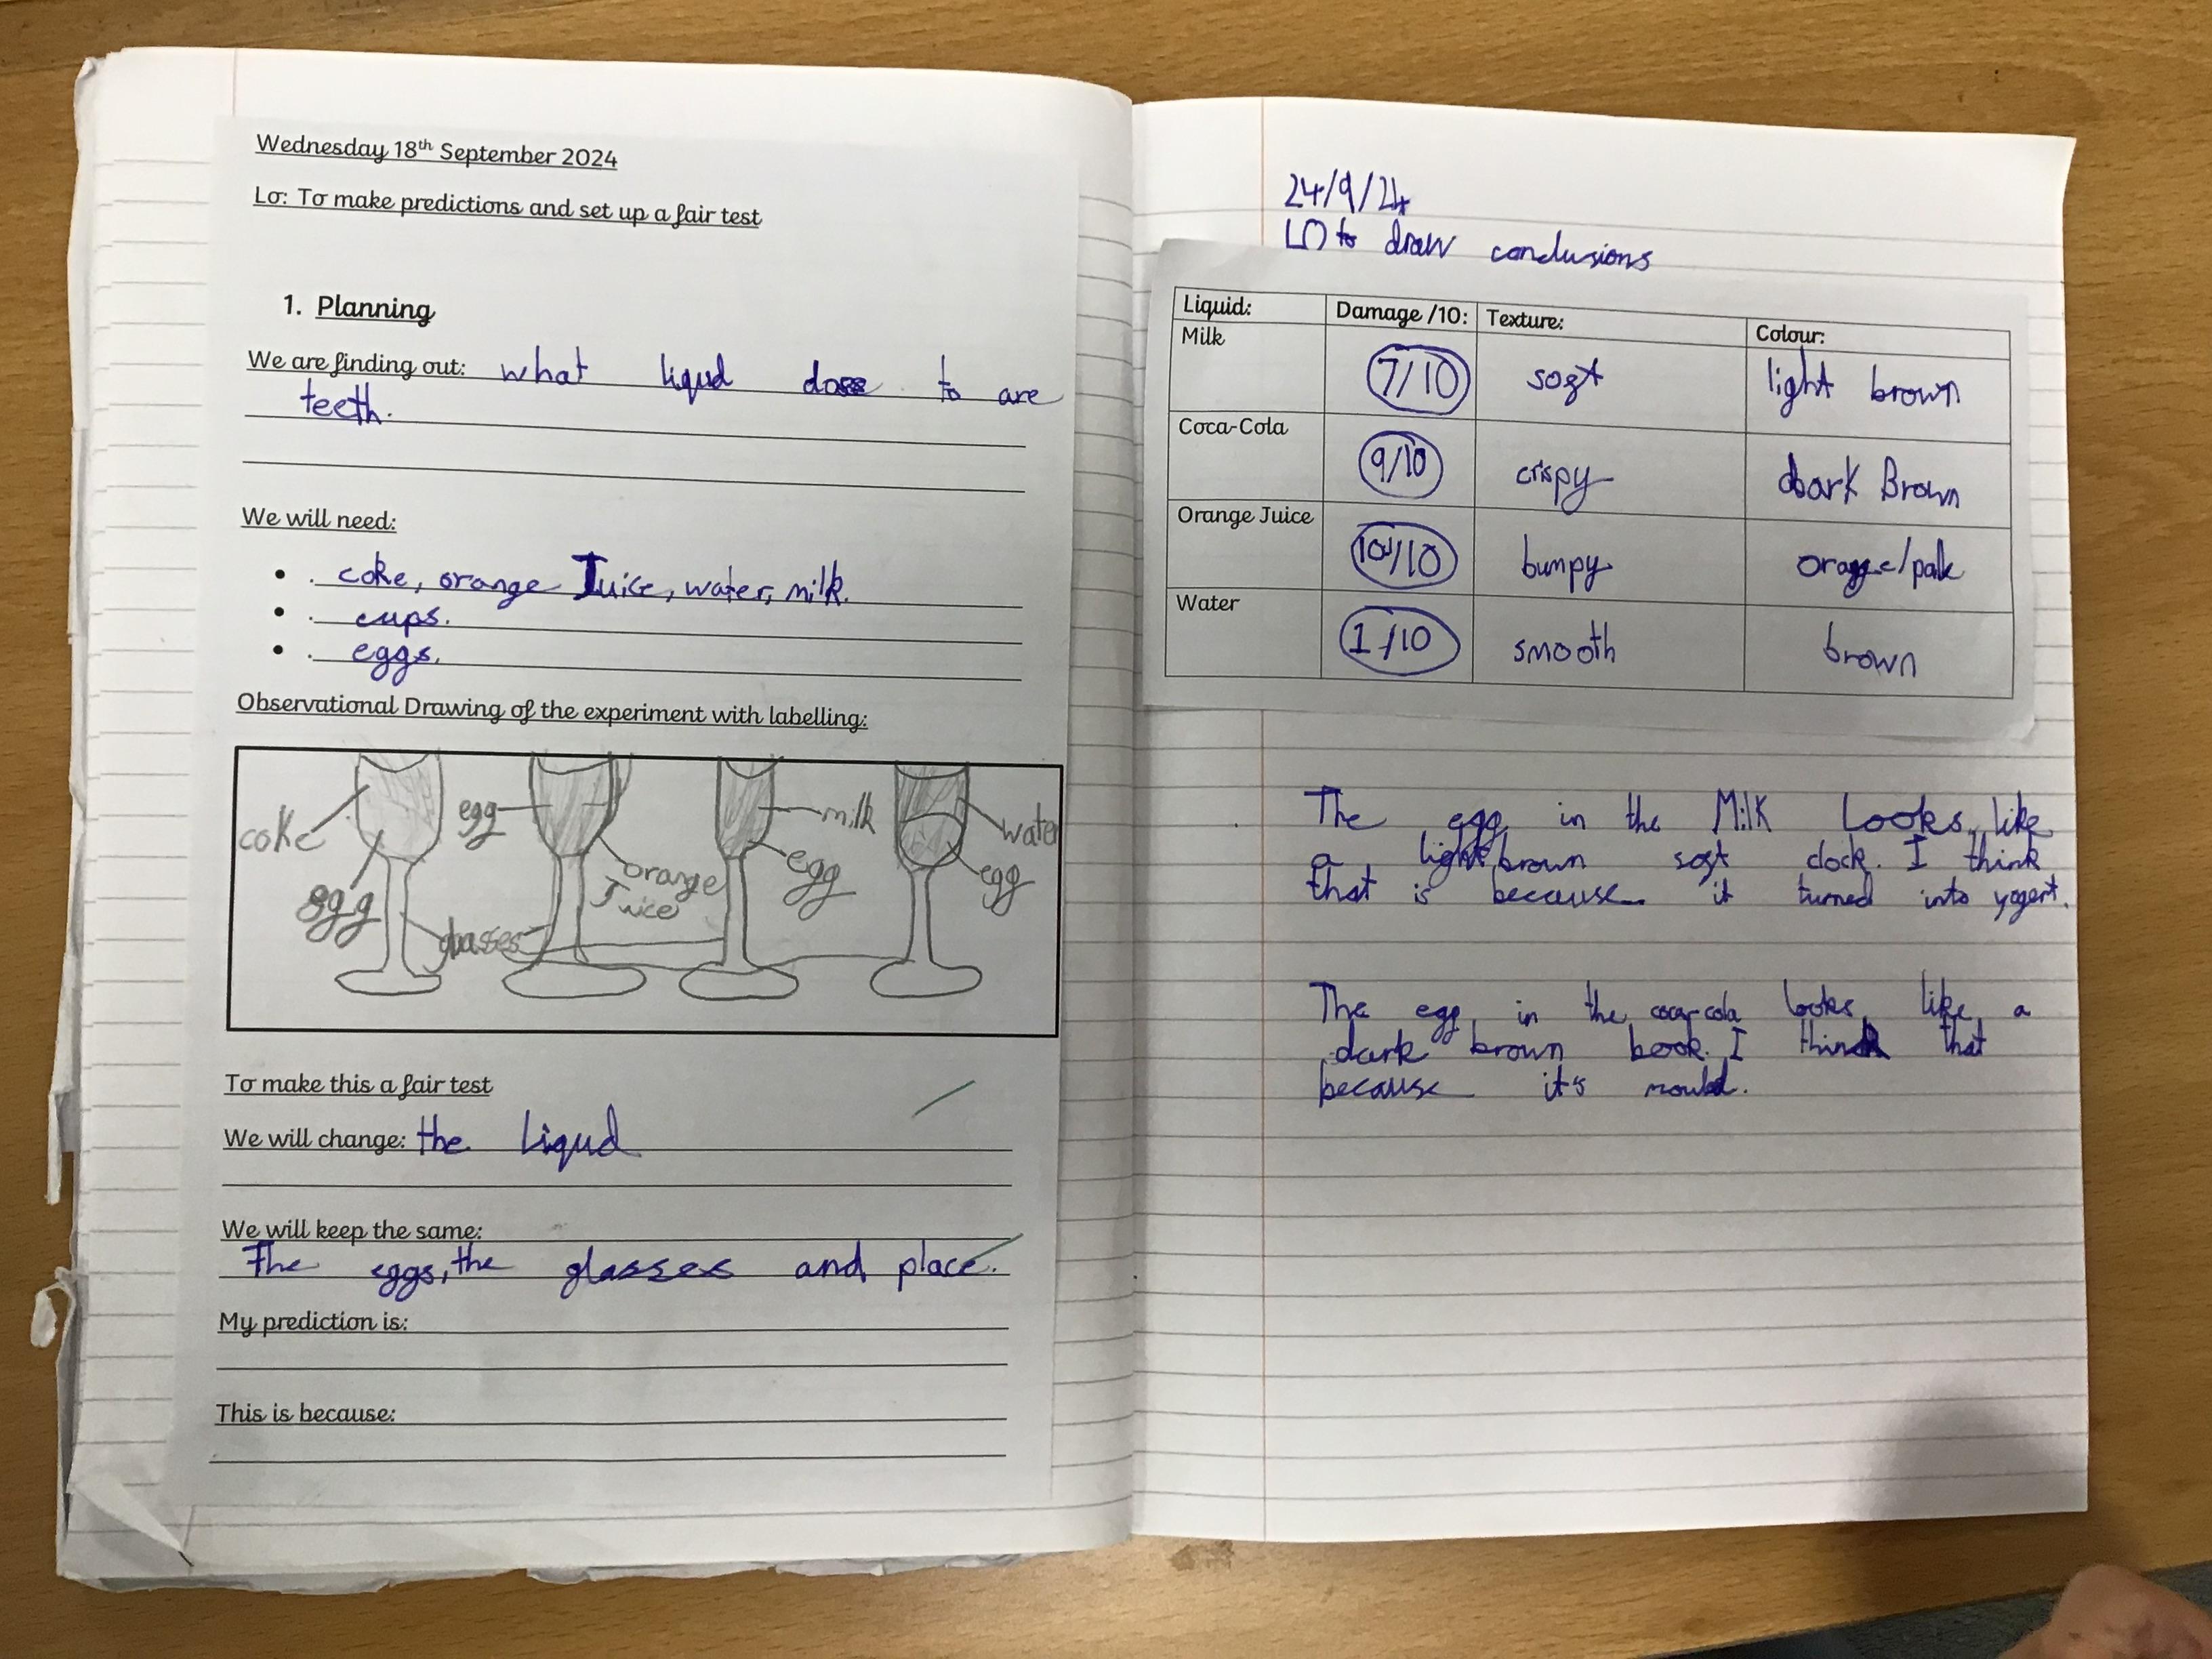 Wednesday 18th September 2024
Lo: To make predictions and set up a fair test
1. Planning
We are finding out: what liqud dose to are
teeth.
We will need:
• . coke, orange Juice, water, milk.
• . cups.
• . eggs.
Observational Drawing of the experiment with labelling:
coke
egg
egg
orange
Juice
glasses
milk
egg
water
egg
To make this a fair test
We will change: the liqud
We will keep the same:
The eggs, the glasses and place.
My prediction is:
This is because:
24/9/24
LO to draw conclusions
Liquid: Damage /10: Texture: Colour:
Milk 7/10 soft light brown
Coca-Cola 9/10 crispy dark Brown
Orange Juice 10/10 bumpy orange/pale
Water 1/10 smooth brown
The egg in the Milk Looks like
a light brown soft clock. I think
that is because it turned into yogert.
The egg in the coca-cola looks like a
dark brown book. I think that
because it's mould.